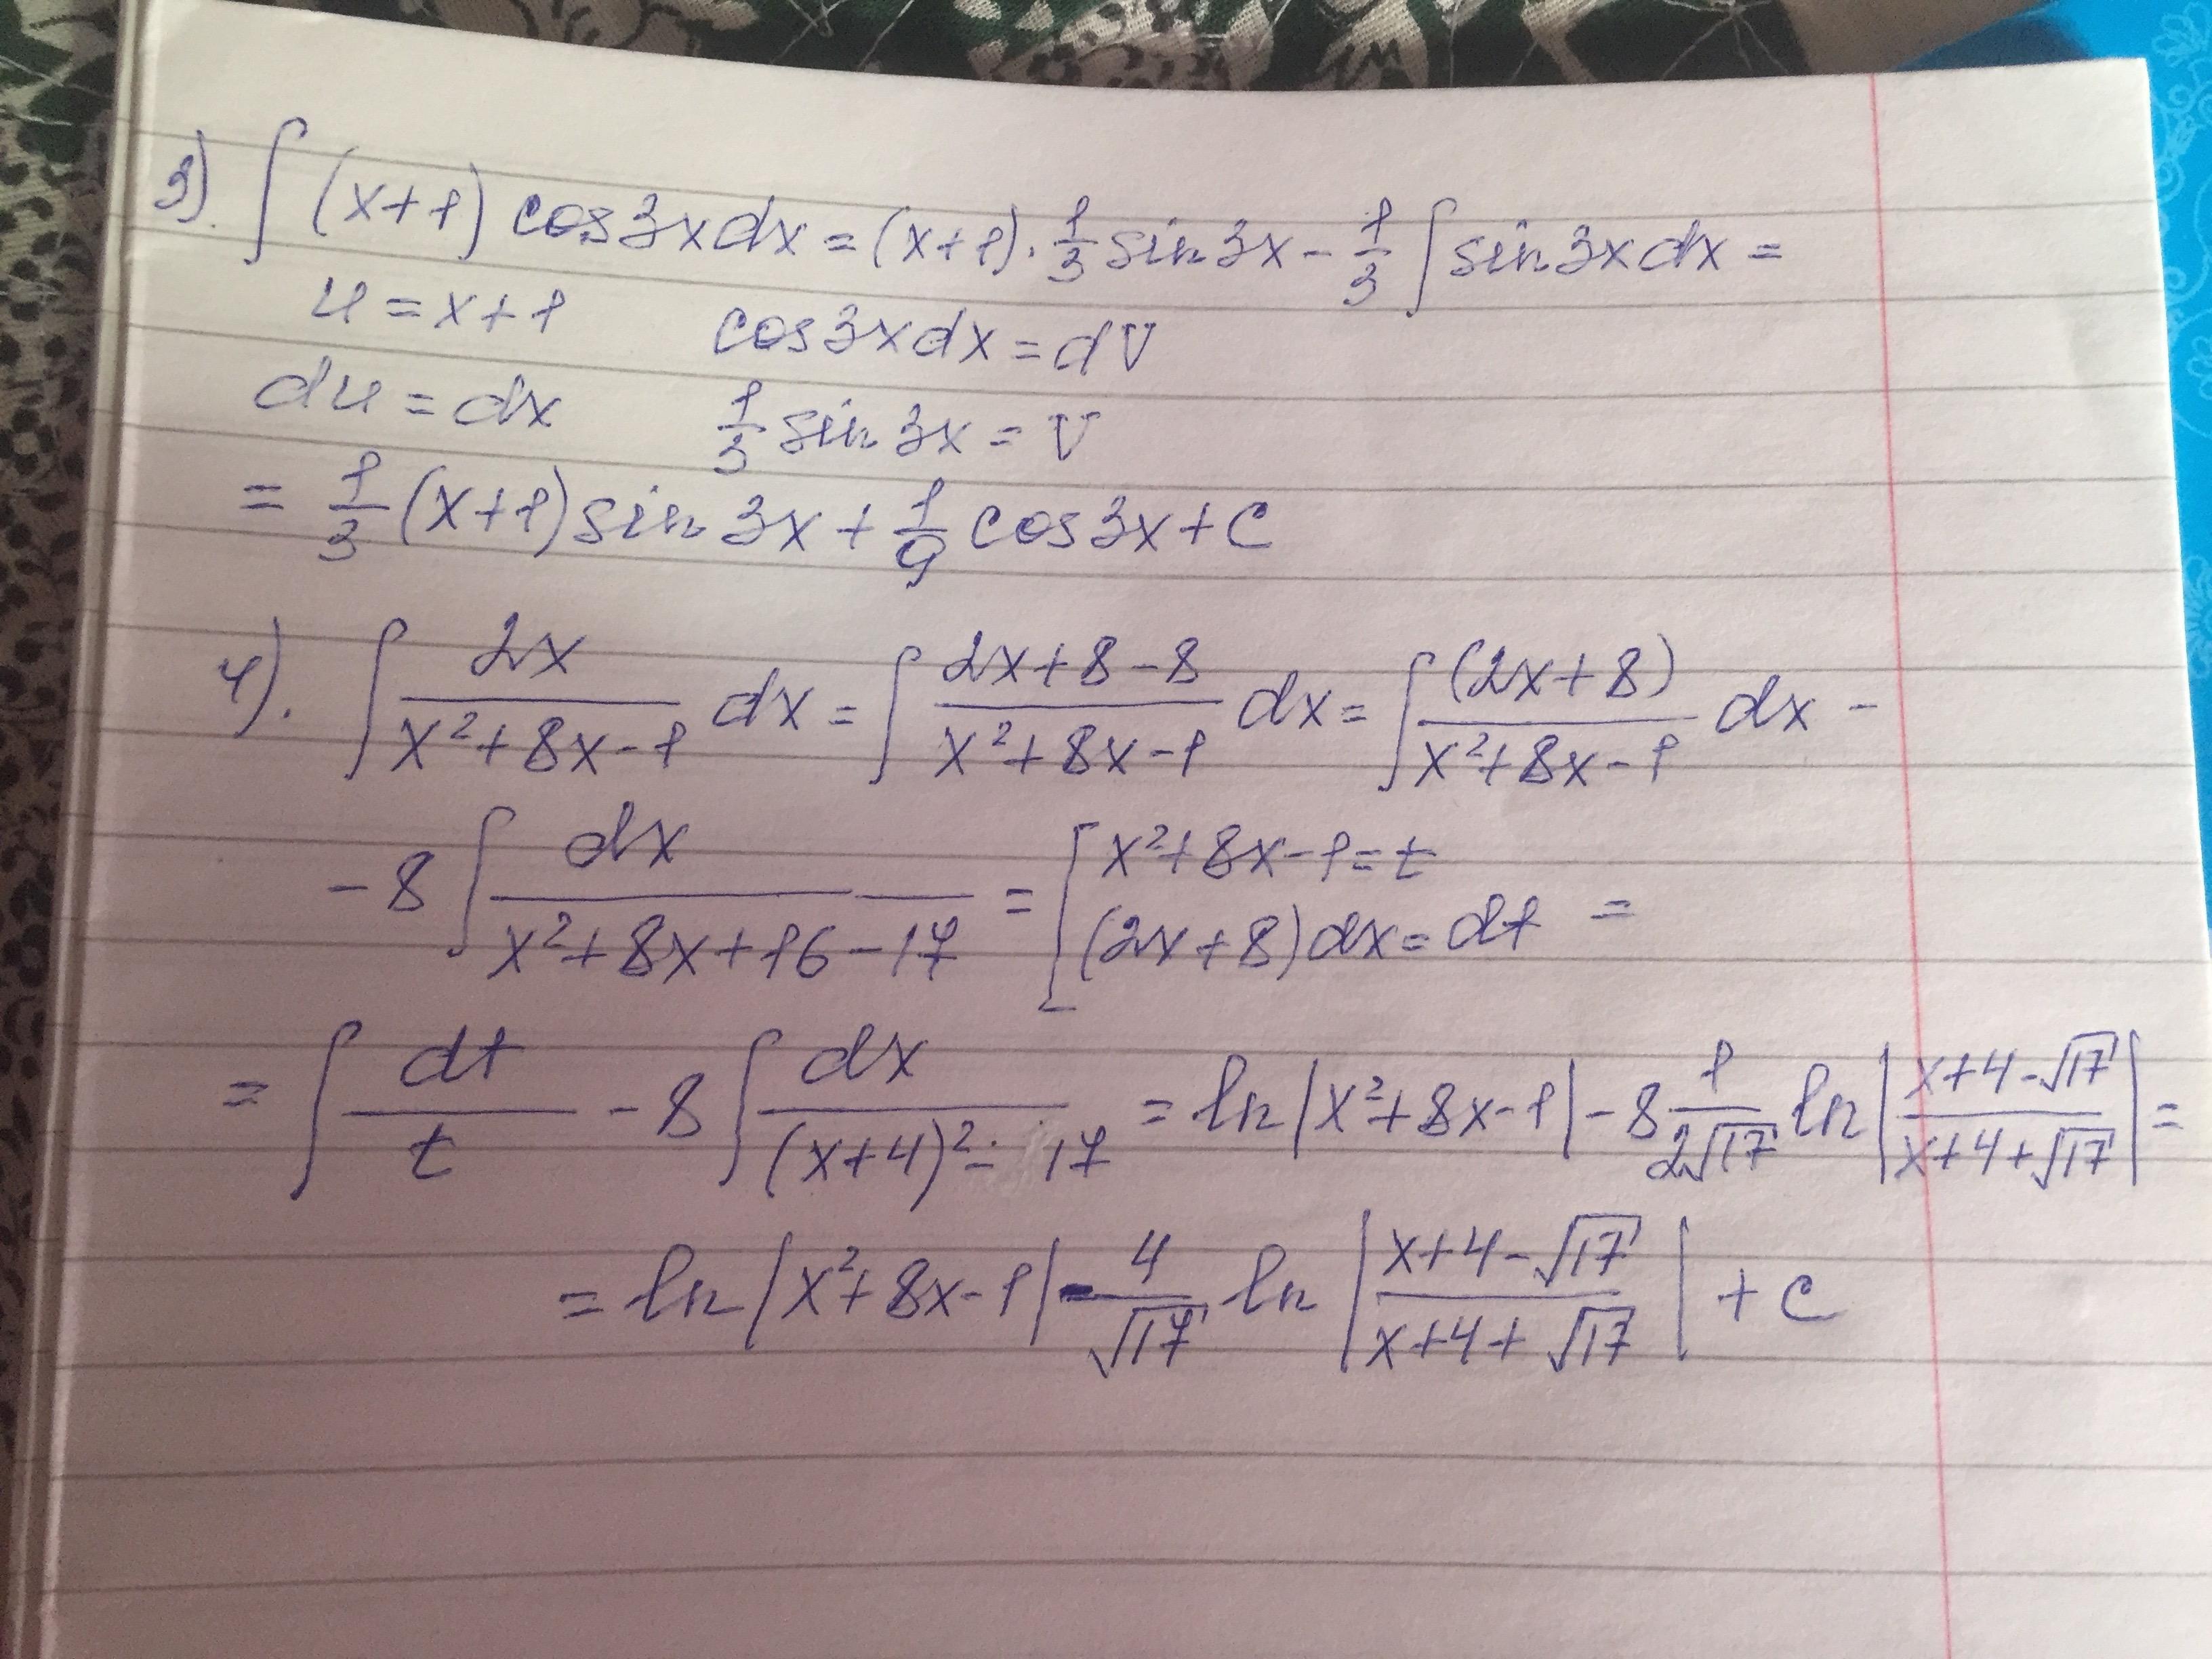 3). ∫ (x+1) cos3xdx = (x+1)· 1/3 sin3x - 1/3 ∫ sin3xdx =
u = x+1 cos3xdx = dv
du = dx 1/3 sin3x = v
= 1/3 (x+1) sin3x + 1/9 cos3x + c
4). ∫ 2x/(x²+8x-1) dx = ∫ (2x+8-8)/(x²+8x-1) dx = ∫ (2x+8)/(x²+8x-1) dx -
- 8 ∫ dx/(x²+8x+16-17) = [ x²+8x-1=t
(2x+8)dx=dt =
= ∫ dt/t - 8 ∫ dx/((x+4)²-17) = ln|x²+8x-1| - 8 1/(2√17) ln|(x+4-√17)/(x+4+√17)| =
= ln|x²+8x-1| - 4/√17 ln|(x+4-√17)/(x+4+√17)| + c